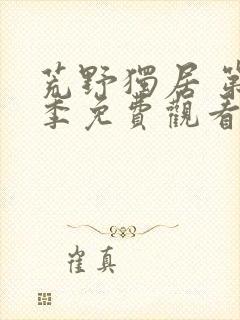 荒野獨居 第
季免費觀看
崔真